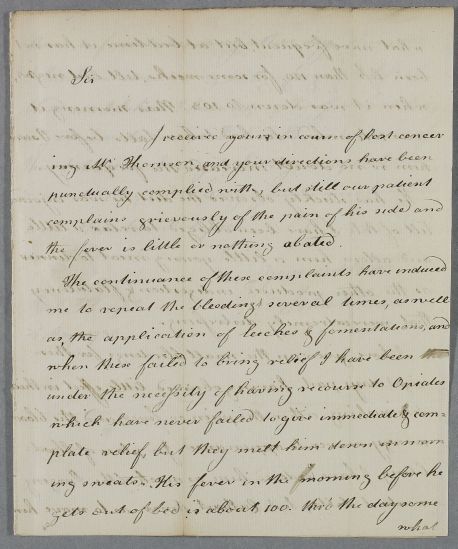 Sir
I received yours in course of Post concer
ing Mr Thomson and your directions have been
punctually complied with, but still our patient
complains grieviously of the pain of his side and
the fever is little or nothing abated.
The continuance of these complaints have induced
me to repeat the bleedings several times, as well
as the application of leeches & fomentations, and
when these failed to bring relief I have been
under the necessity of having recourse to Opiates
which have never failed to give immediate & com=
plate relief, but they melt him down in morn
ing sweats. His fever in the morning before he
gets out of bed is about 100. thro the day some
what